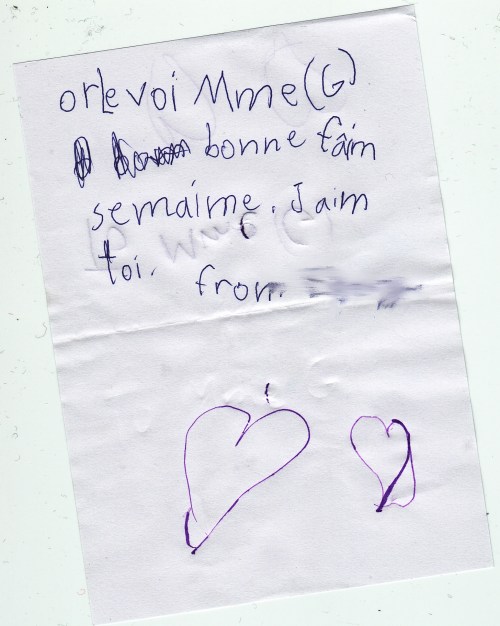 orlevoi Mme (G)
bonne faim
semaime. J aim
toi.
from